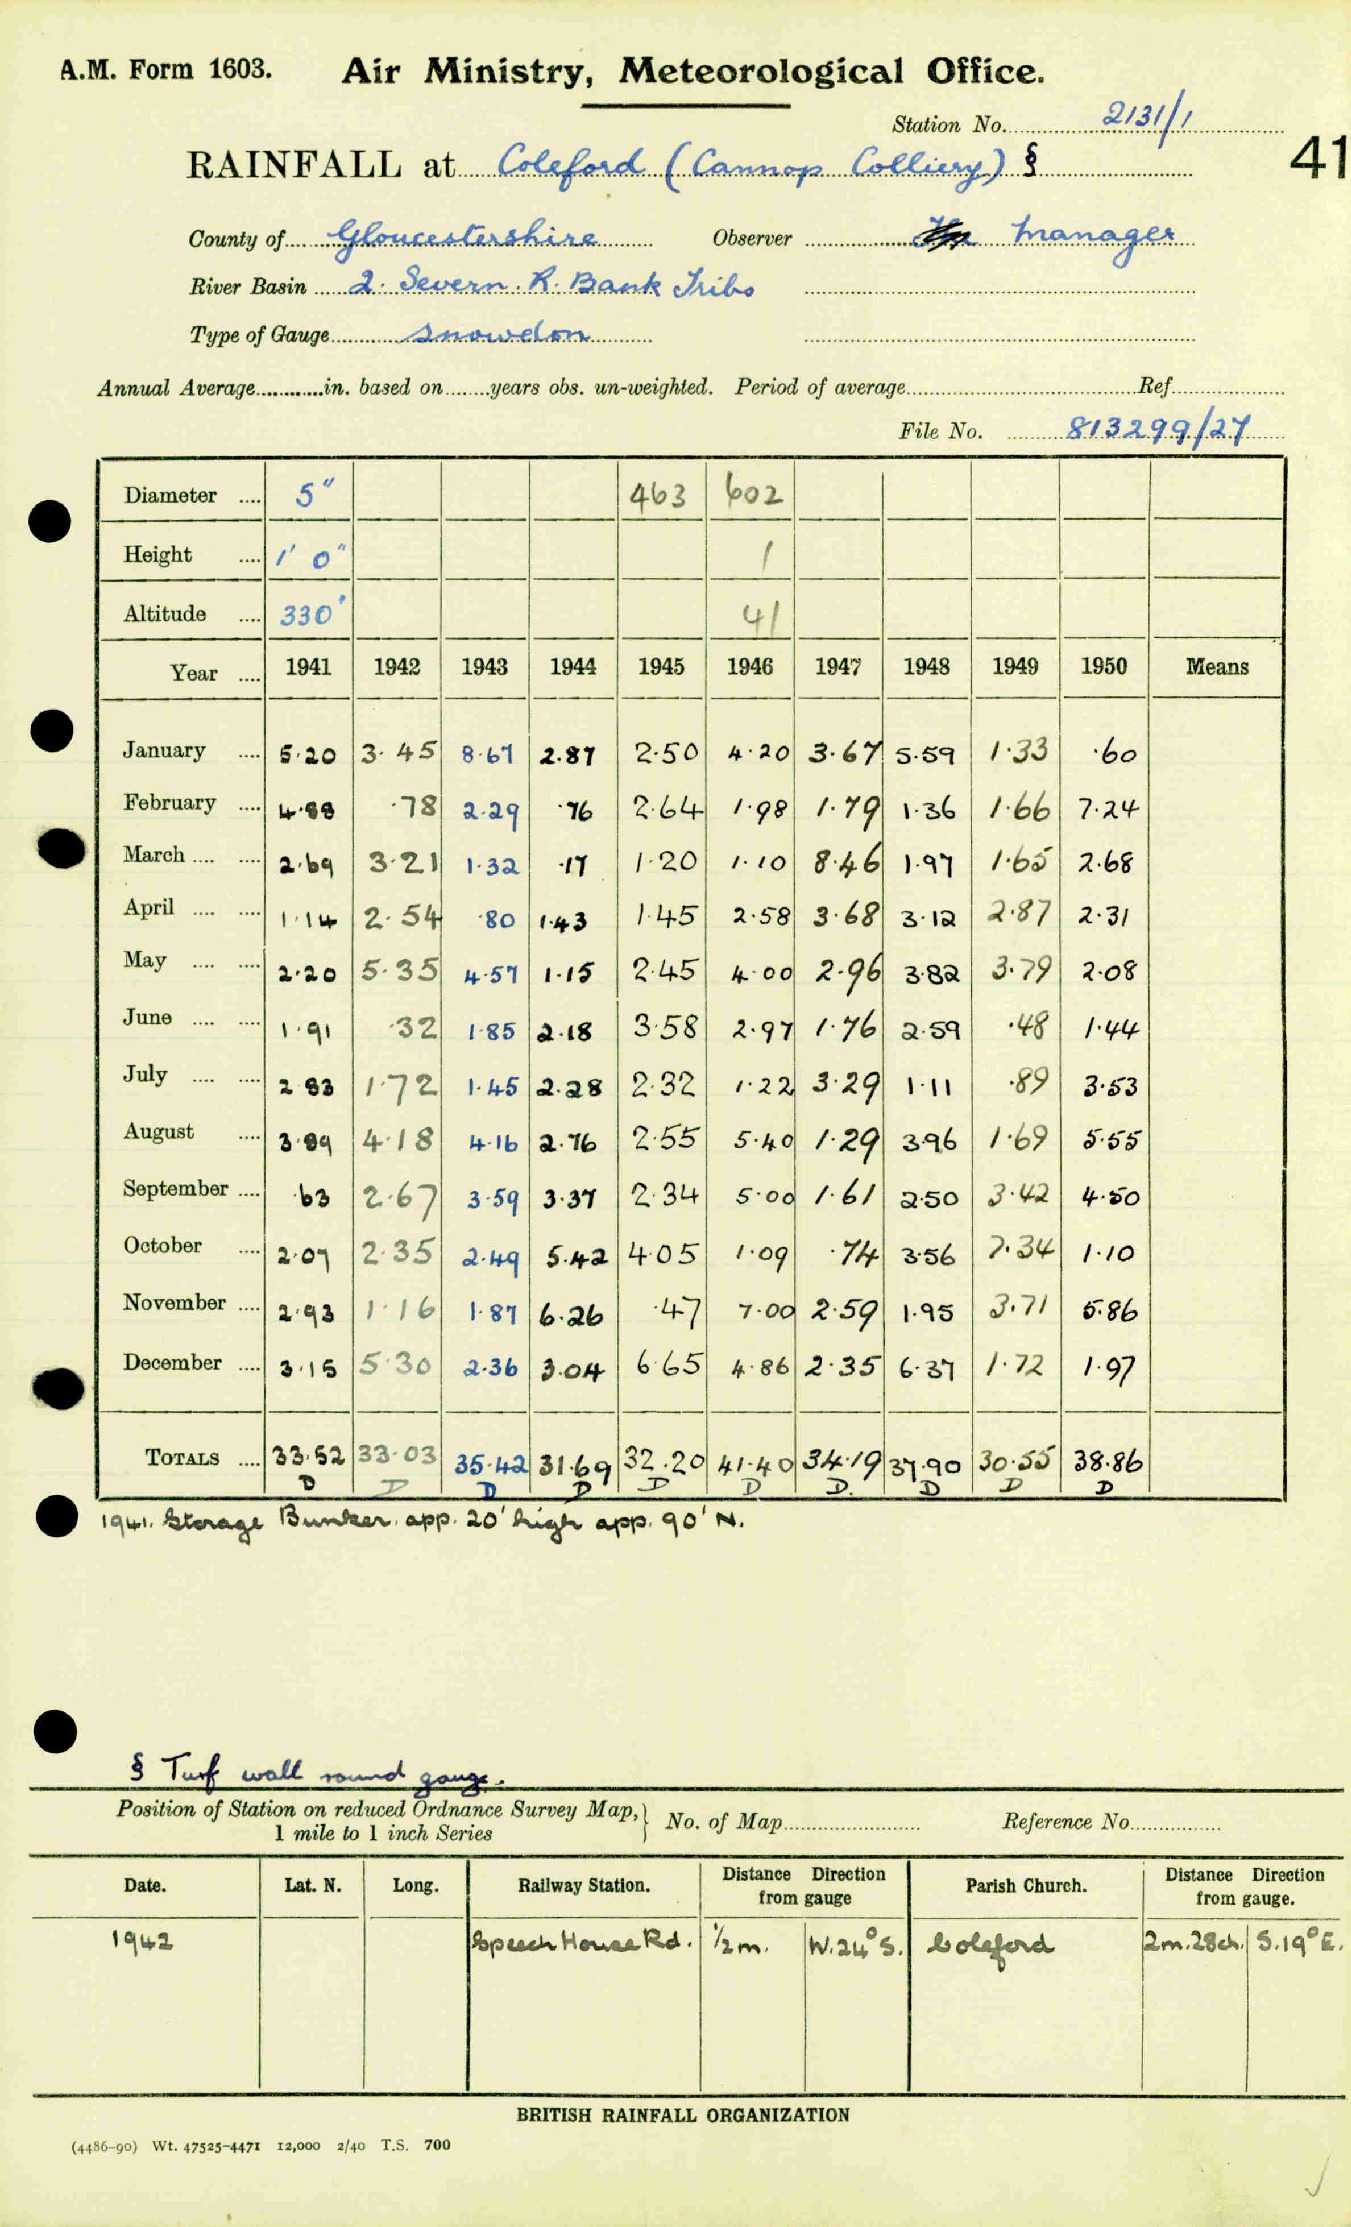 A.M. Form 1603. Air Ministry, Meteorological Office.
Station No. 2131/1
41
RAINFALL at Coleford (Cannop Colliery) §
County of Gloucestershire Observer Manager
River Basin 2. Severn. R. Bank Tribs
Type of Gauge Snowdon
Annual Average in. based on years obs. un-weighted. Period of average Ref.
File No. 813299/27
Diameter 5" 463 602
Height 1' 0" 1
Altitude 330' 41
Year 1941 1942 1943 1944 1945 1946 1947 1948 1949 1950 Means
January 5.20 3.45 8.67 2.87 2.50 4.20 3.67 5.59 1.33 .60
February 4.88 .78 2.29 .76 2.64 1.98 1.79 1.36 1.66 7.24
March 2.69 3.21 1.32 .17 1.20 1.10 8.46 1.97 1.65 2.68
April 1.14 2.54 .80 1.43 1.45 2.58 3.68 3.12 2.87 2.31
May 2.20 5.35 4.57 1.15 2.45 4.00 2.96 3.82 3.79 2.08
June 1.91 .32 1.85 2.18 3.58 2.97 1.76 2.59 .48 1.44
July 2.83 1.72 1.45 2.28 2.32 1.22 3.29 1.11 .89 3.53
August 3.89 4.18 4.16 2.76 2.55 5.40 1.29 3.96 1.69 5.55
September .63 2.67 3.59 3.37 2.34 5.00 1.61 2.50 3.42 4.50
October 2.07 2.35 2.49 5.42 4.05 1.09 .74 3.56 7.34 1.10
November 2.93 1.16 1.87 6.26 .47 7.00 2.59 1.95 3.71 5.86
December 3.15 5.30 2.36 3.04 6.65 4.86 2.35 6.37 1.72 1.97
TOTALS 33.52 33.03 35.42 31.69 32.20 41.40 34.19 37.90 30.55 38.86
D D D D D D D. D D D
1941. Storage Bunker. app. 20' high app. 90' N.
§ Turf wall round gauge.
Position of Station on reduced Ordnance Survey Map, No. of Map Reference No.
1 mile to 1 inch Series
Date. Lat. N. Long. Railway Station. Distance Direction from gauge Parish Church. Distance Direction from gauge.
1942 Speech House Rd. ½ m. W.24°S. Coleford 2m.28ch. S.19°E.
BRITISH RAINFALL ORGANIZATION
(4486-90) Wt. 47525-4471 12,000 2/40 T.S. 700